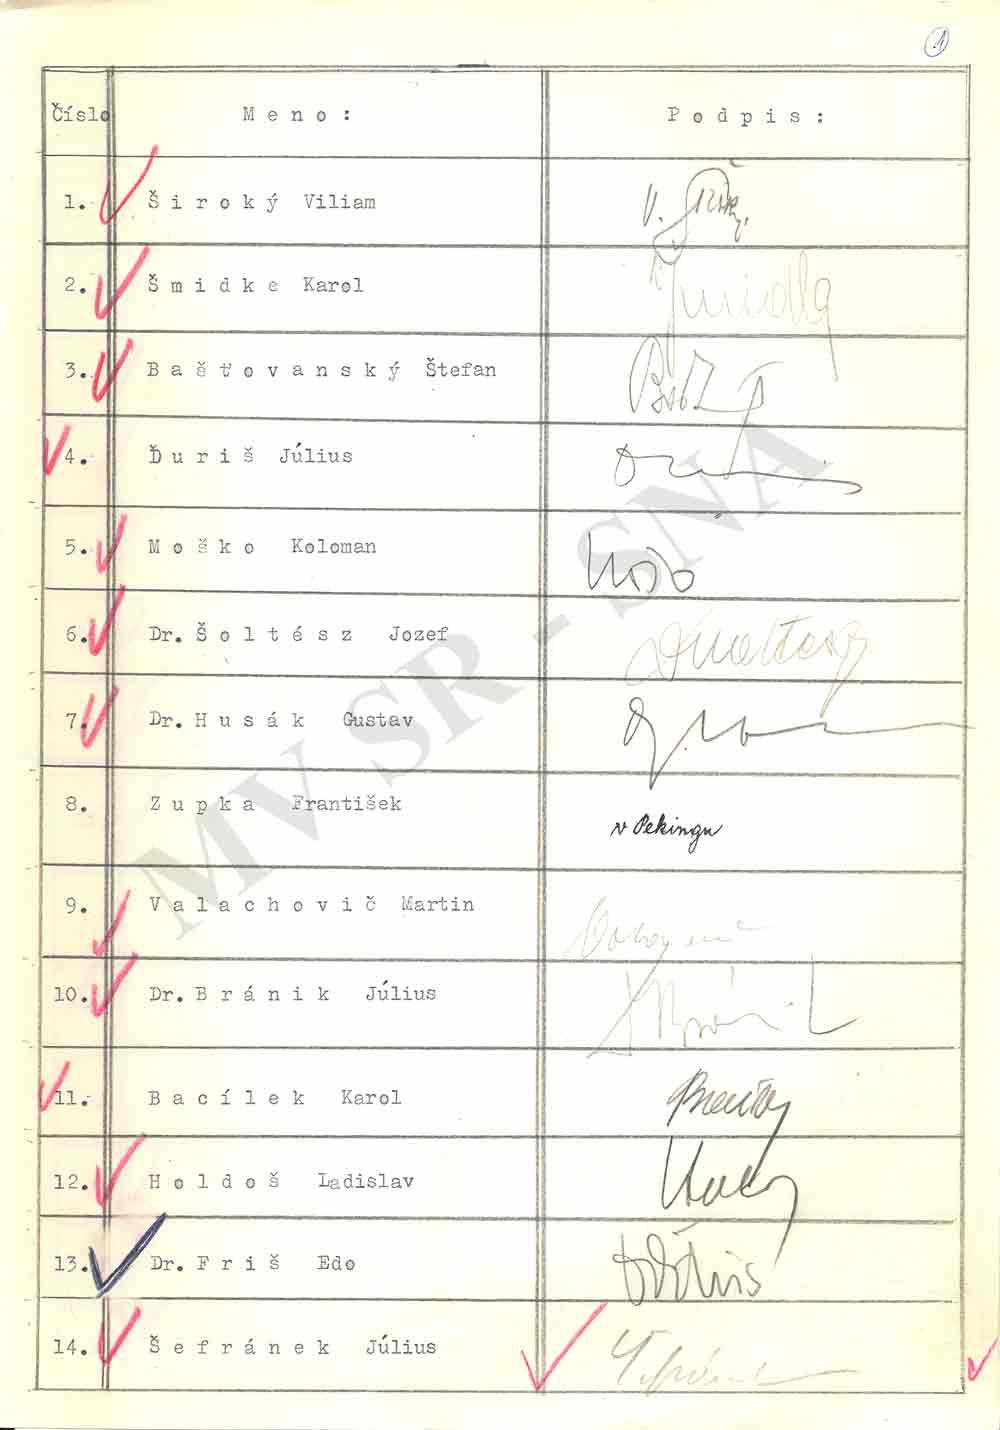 1
Číslo Meno: Podpis:
1. Široký Viliam V. Široký
2. Šmidke Karol
3. Bašťovanský Štefan
4. Ďuriš Július
5. Moško Koloman
6. Dr. Šoltész Jozef
7. Dr. Husák Gustav
8. Zupka František v Pekingu
9. Valachovič Martin
10. Dr. Bránik Július
11. Bacílek Karol
12. Holdoš Ladislav
13. Dr. Friš Edo
14. Šefránek Július
MV SR - SNA